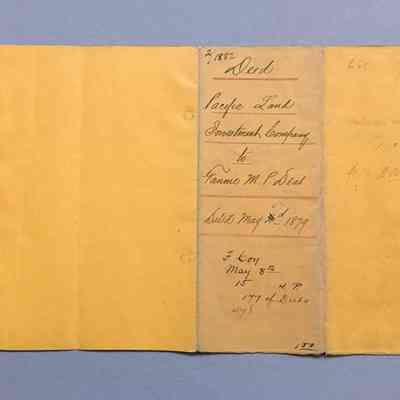 2/1882
Deed
Pacific Land
Investment Company
to
Fannie M. P. Deal
Dated May 3d 1879
May 8th
15 P.
177 of Deeds
1.50